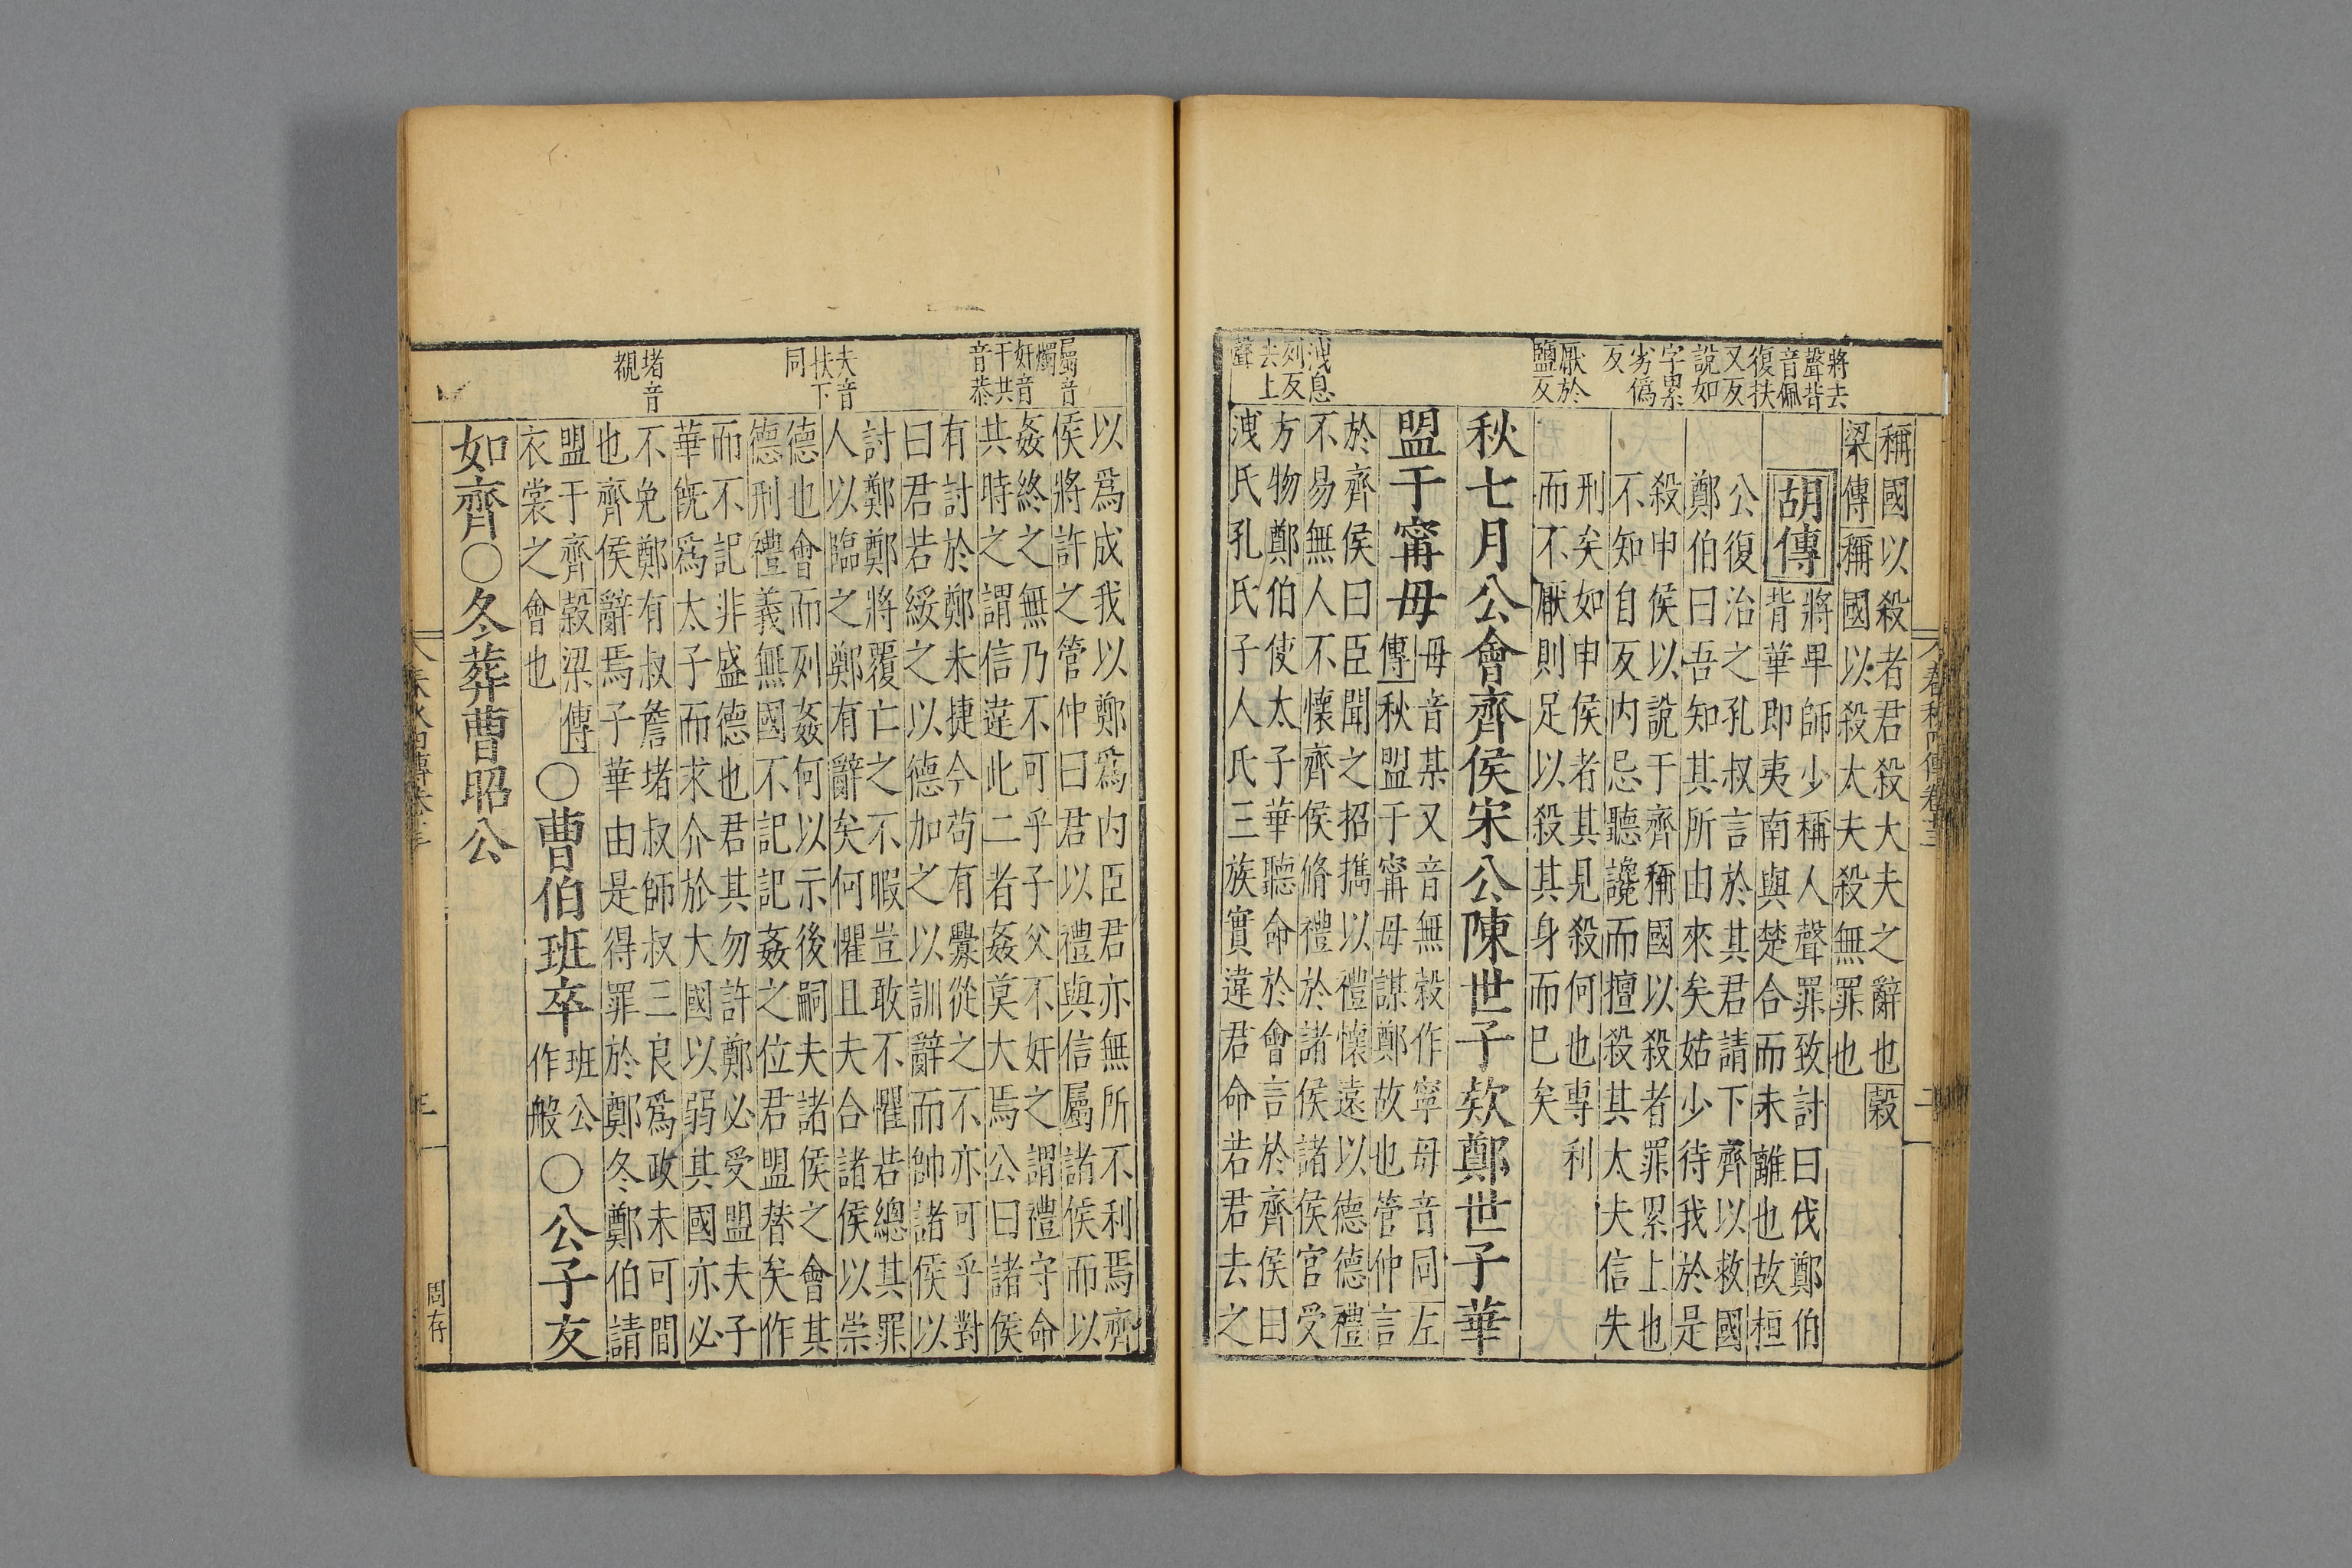 將去
聲背
音佩
復扶
又反
說如
字累
劣僞
反
厭於
鹽反
洩息
列反
去上
聲
稱國以殺者君殺大夫之辭也穀
梁傳稱國以殺太夫殺無罪也
胡傳
將卑師少稱人聲罪致討曰伐鄭伯
背華即夷南與楚合而未離也故桓
公復治之孔叔言於其君請下齊以救國
鄭伯曰吾知其所由來矣姑少待我於是
殺申侯以說于齊稱國以殺者罪累上也
不知自反内忌聽讒而擅殺其太夫信失
刑矣如申侯者其見殺何也專利
而不厭則足以殺其身而已矣
秋七月公會齊侯宋公陳世子欵鄭世子華
盟于甯毋
毋音某又音無穀作寧毋音同左
傳秋盟于甯毋謀鄭故也管仲言
於齊侯曰臣聞之招攜以禮懷遠以德德禮
不易無人不懷齊侯脩禮於諸侯諸侯官受
方物鄭伯使太子華聽命於會言於齊侯曰
洩氏孔氏子人氏三族實違君命若君去之
屬音
燭
奸音
干共
音恭
夫音
扶下
同
堵音
覩
以爲成我以鄭爲内臣君亦無所不利焉齊
侯將許之管仲曰君以禮與信屬諸侯而以
姦終之無乃不可乎子父不奸之謂禮守命
共時之謂信違此二者姦莫大焉公曰諸侯
有討於鄭未捷今苟有釁從之不亦可乎對
曰君若綏之以德加之以訓辭而帥諸侯以
討鄭鄭將覆亡之不暇豈敢不懼若總其罪
人以臨之鄭有辭矣何懼且夫合諸侯以崇
德也會而列姦何以示後嗣夫諸侯之會其
德刑禮義無國不記記姦之位君盟替矣作
而不記非盛德也君其勿許鄭必受盟夫子
華旣爲太子而求介於大國以弱其國亦必
不免鄭有叔詹堵叔師叔三良爲政未可間
也齊侯辭焉子華由是得罪於鄭冬鄭伯請
盟于齊穀梁傳
衣裳之會也
○曹伯班卒
班公
作般
○公子友
如齊○冬葬曹昭公
周存